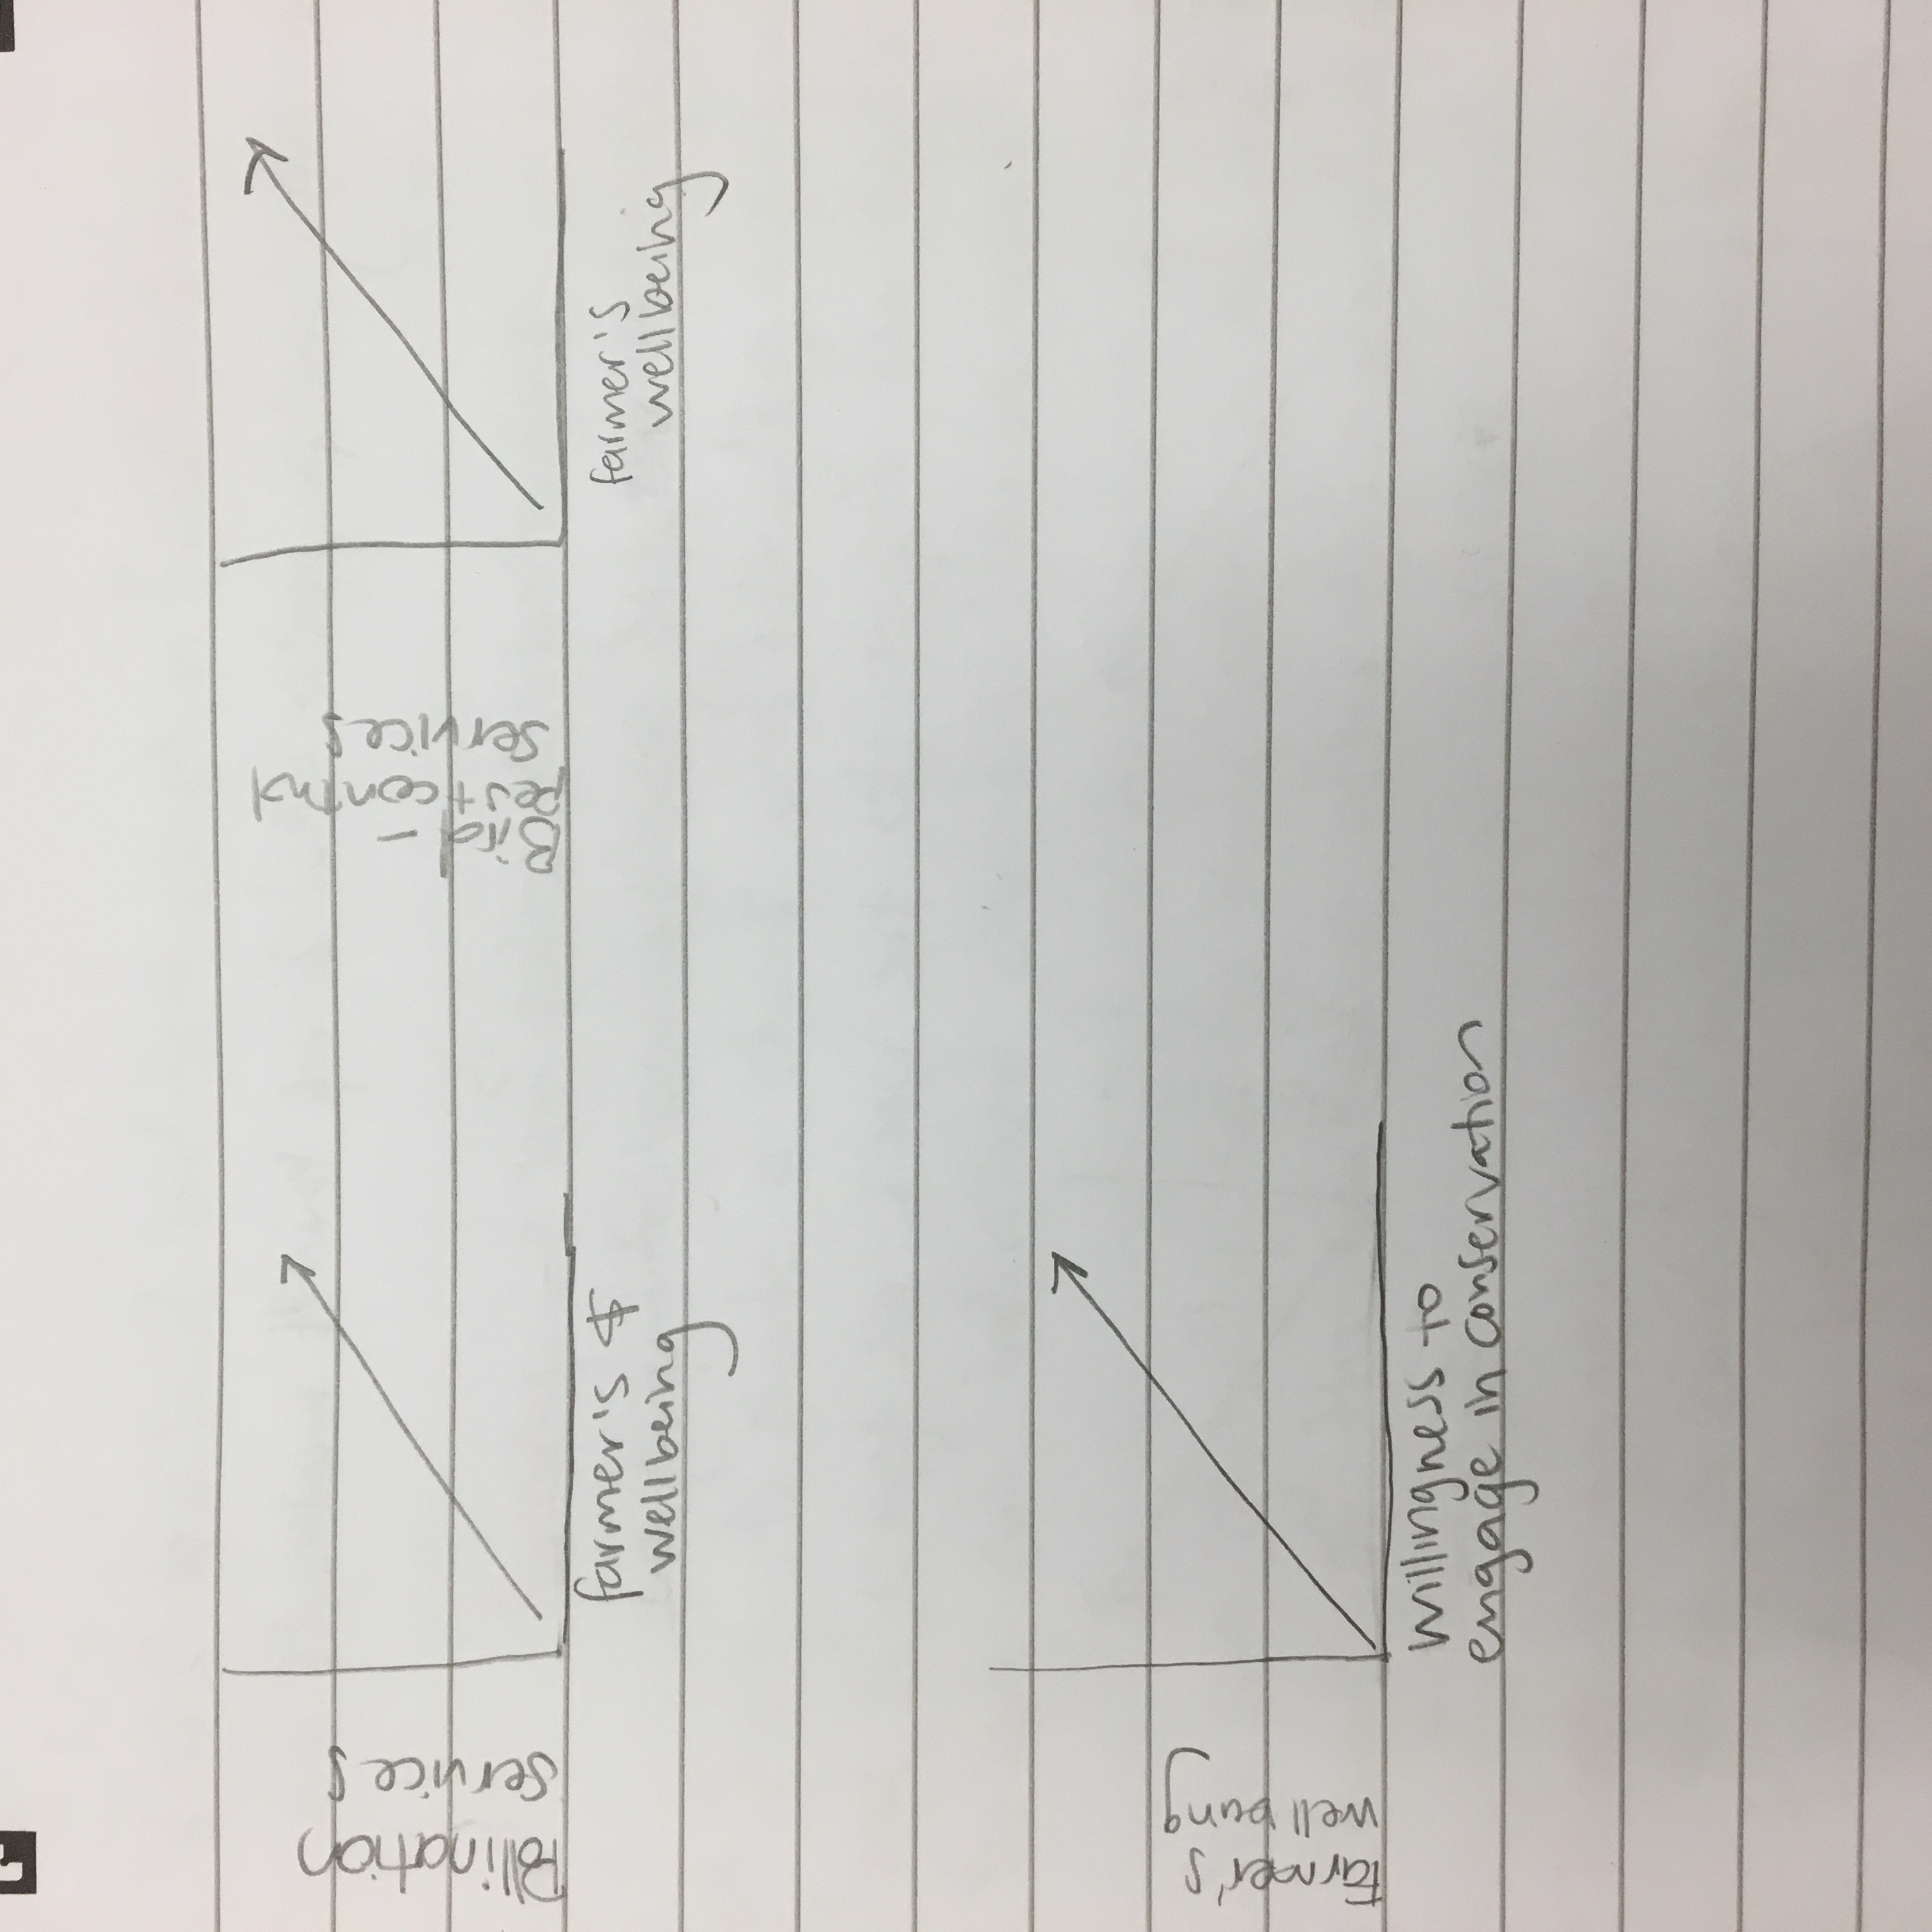 Pollination
services
farmer's $
wellbeing
Bird -
pest control
services
farmer's
wellbeing
Farmer's
well being
Willingness to
engage in conservation